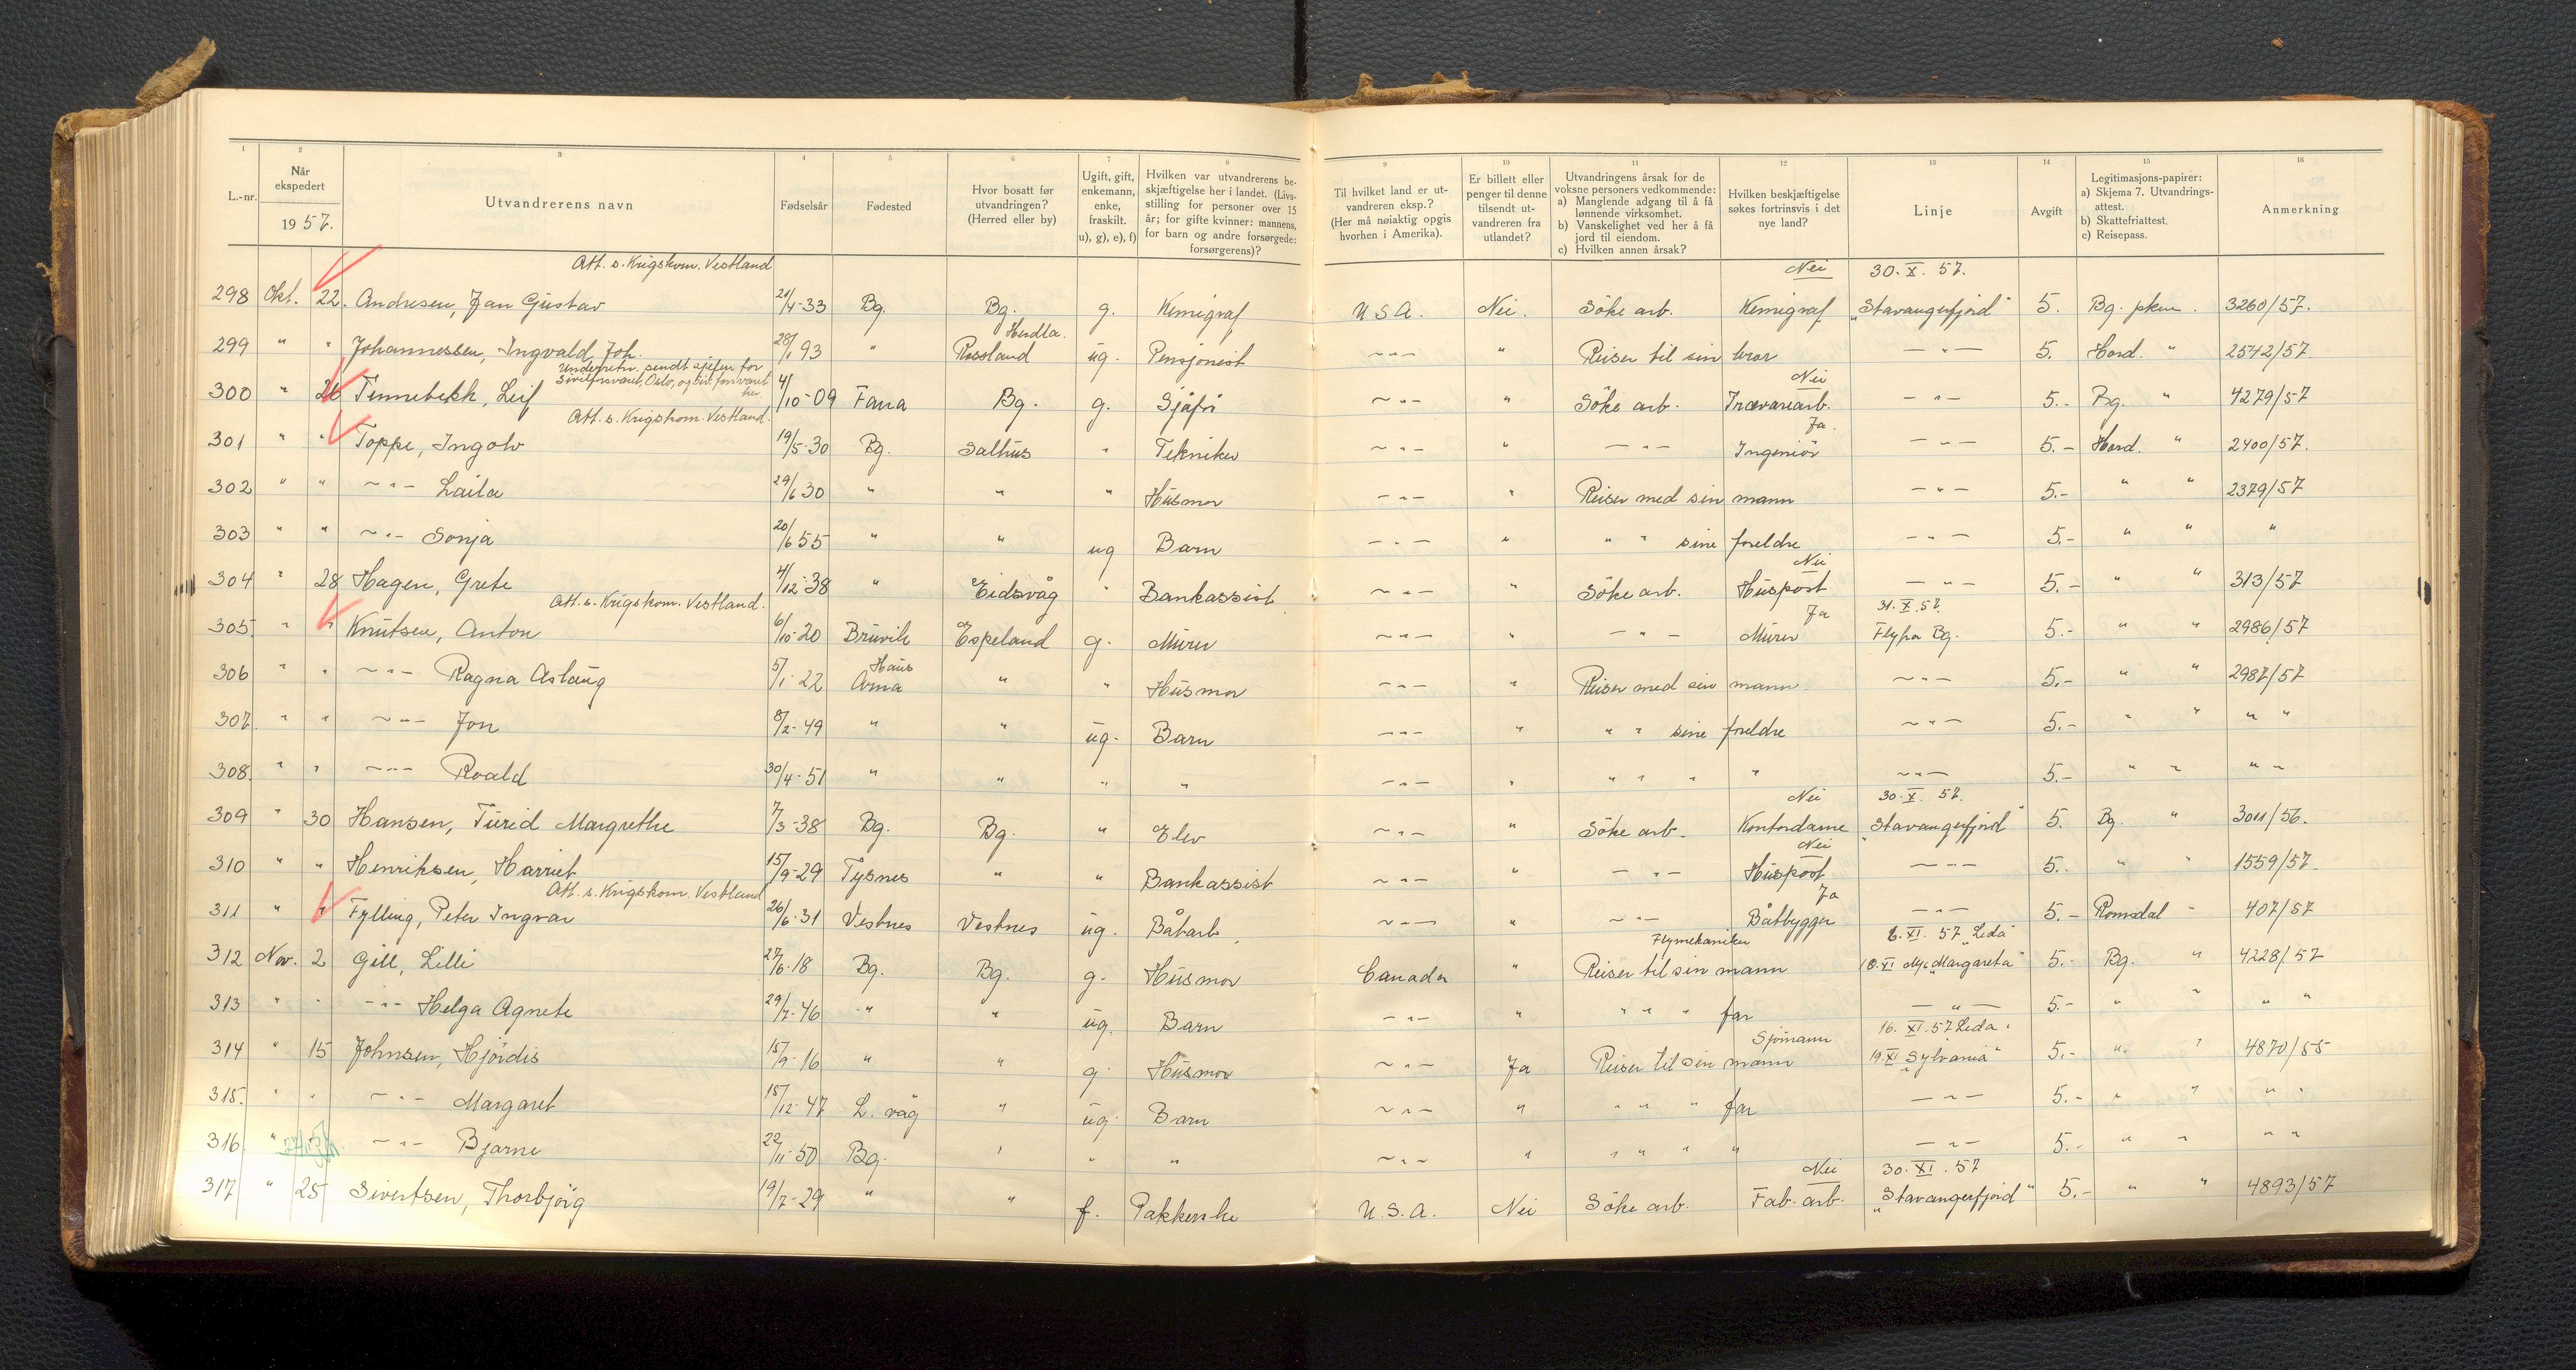 1 2 3 4 5 6 7 8 9 10 11 12 13 14 15 16
L.-nr. | Når ekspedert 1957. | Utvandrerens navn | Fødselsår | Fødested | Hvor bosatt før utvandringen? (Herred eller by) | Ugift, gift, enkemann, enke, fraskilt. u), g), e), f) | Hvilken var utvandrerens beskjæftigelse her i landet. (Livsstilling for personer over 15 år; for gifte kvinner: mannens, for barn og andre forsørgede: forsørgerens)? | Til hvilket land er utvandreren eksp.? (Her må nøiaktig opgis hvorhen i Amerika). | Er billett eller penger til denne tilsendt utvandreren fra utlandet? | Utvandringens årsak for de voksne personers vedkommende: a) Manglende adgang til å få lønnende virksomhet. b) Vanskelighet ved her å få jord til eiendom. c) Hvilken annen årsak? | Hvilken beskjæftigelse søkes fortrinsvis i det nye land? | Linje | Avgift | Legitimasjons-papirer: a) Skjema 7. Utvandringsattest. b) Skattefriattest. c) Reisepass. | Anmerkning
Att. s. Krigskom. Vestland Nei 30. X. 57.
298 Okt. 22. Andresen, Jan Gustav 21/4-33 Bg. Bg. g. Kemigraf U S A. Nei. Söke arb. Kemigraf "Stavangerfjord" 5. Bg. pkm. 3260/57.
Herdla.
299 " " Johannessen, Ingvald Joh. 28/1 93 " Rossland ug. Pensjonist ~"— " Reiser til sin bror —"— 5. Hord. " 2542/57.
Underretn. sendt sjefen for Sivilforsvaret, Oslo, og siv. forsvaret her. Nei
300 " 26 Tennebekk, Leif 4/10-09 Fana Bg. g. Sjåfør ~"— " Söke arb. Trevarearb. —"— 5.- Bg. " 4279/57
Att. s. Krigskom. Vestland. Ja.
301 " " Toppe, Ingolv 19/5-30 Bg. Salhus " Tekniker ~"— " —"— Ingeniör —"— 5.- Hord. " 2400/57.
302 " " ~"— Laila 29/6 30 " " " Husmor —"— " Reiser med sin mann —"— 5.- " " 2379/57
303 " " ~"— Sonja 20/6 55 " " ug Barn —"— " " " sine foreldre —"— 5.- " " "
Nei
304 " 28 Hagen, Grete 4/12-38 " Eidsvåg " Bankassist. ~"— " Söke arb. Huspost —"— 5.- " " 313/57
Att. s. Krigskom. Vestland. Ja 31. X. 57.
305. " " Knutsen, Anton 6/10-20 Bruvik Espeland g. Murer ~"— " —"— Murer Fly fra Bg. 5.- " " 2986/57
Haus
306 " " ~"— Ragna Aslaug 5/1-22 Arna " " Husmor —"— " Reiser med sin mann ~"— 5.- " " 2987/57
307. " " ~"— Jon 8/2-49 " " ug. Barn —"— " " " sine foreldre ~"— 5.- " " " "
308. " " ~"— Roald 30/4-51 " " " " —"— " " " " " ~"— 5.- " " " "
Nei 30. X. 57.
309 " 30 Hansen, Turid Margrethe 7/3-38 Bg. Bg. " Elev ~"— " Söke arb. Kontordame "Stavangerfjord" 5. Bg. " 3011/56.
Nei
310 " " Henriksen, Harriet 15/9-29 Tysnes " " Bankassist ~"— " —"— Huspost —"— 5.- " " 1559/57.
Att. s. Krigskom. Vestland Ja
311 " " Fylling, Peter Ingvar 26/6-31 Vestnes Vestnes ug. Båtarb. ~"— " ~"— Båtbygger —"— 5.- Romsdal " 407/57
Flymekaniker 6. XI. 57 "Leda"
312 Nov. 2 Gill, Lilli 27/6-18 Bg. Bg. g. Husmor Canada " Reiser til sin mann 18. XI "Margareta" 5.- Bg. " 4228/57
313 " " —"— Helga Agnete 29/7-46 " " ug. Barn —"— " " " " far —"— 5.- " " " "
Sjömann 16. XI. 57 "Leda"
314 " 15 Johnsen, Hjördis 15/9-16 " " g. Husmor ~"— Ja Reiser til sin mann 19. XI "Sylvania" 5.- " " 4870/55
315. " " ~"— Margaret 15/12-47 L. våg " ug. Barn ~"— " " " " far —"— 5.- " " " "
316. " " —"— Bjarne 22/11-50 Bg. " " " ~"— " " " " " —"— 5.- " " " "
Nei 30. XI. 57
317 " 25 Sivertsen, Thorbjörg 19/7-29 " " f. Pakkerske U.S.A. Nei Söke arb. Fab. arb. "Stavangerfjord" 5.- " " 4893/57